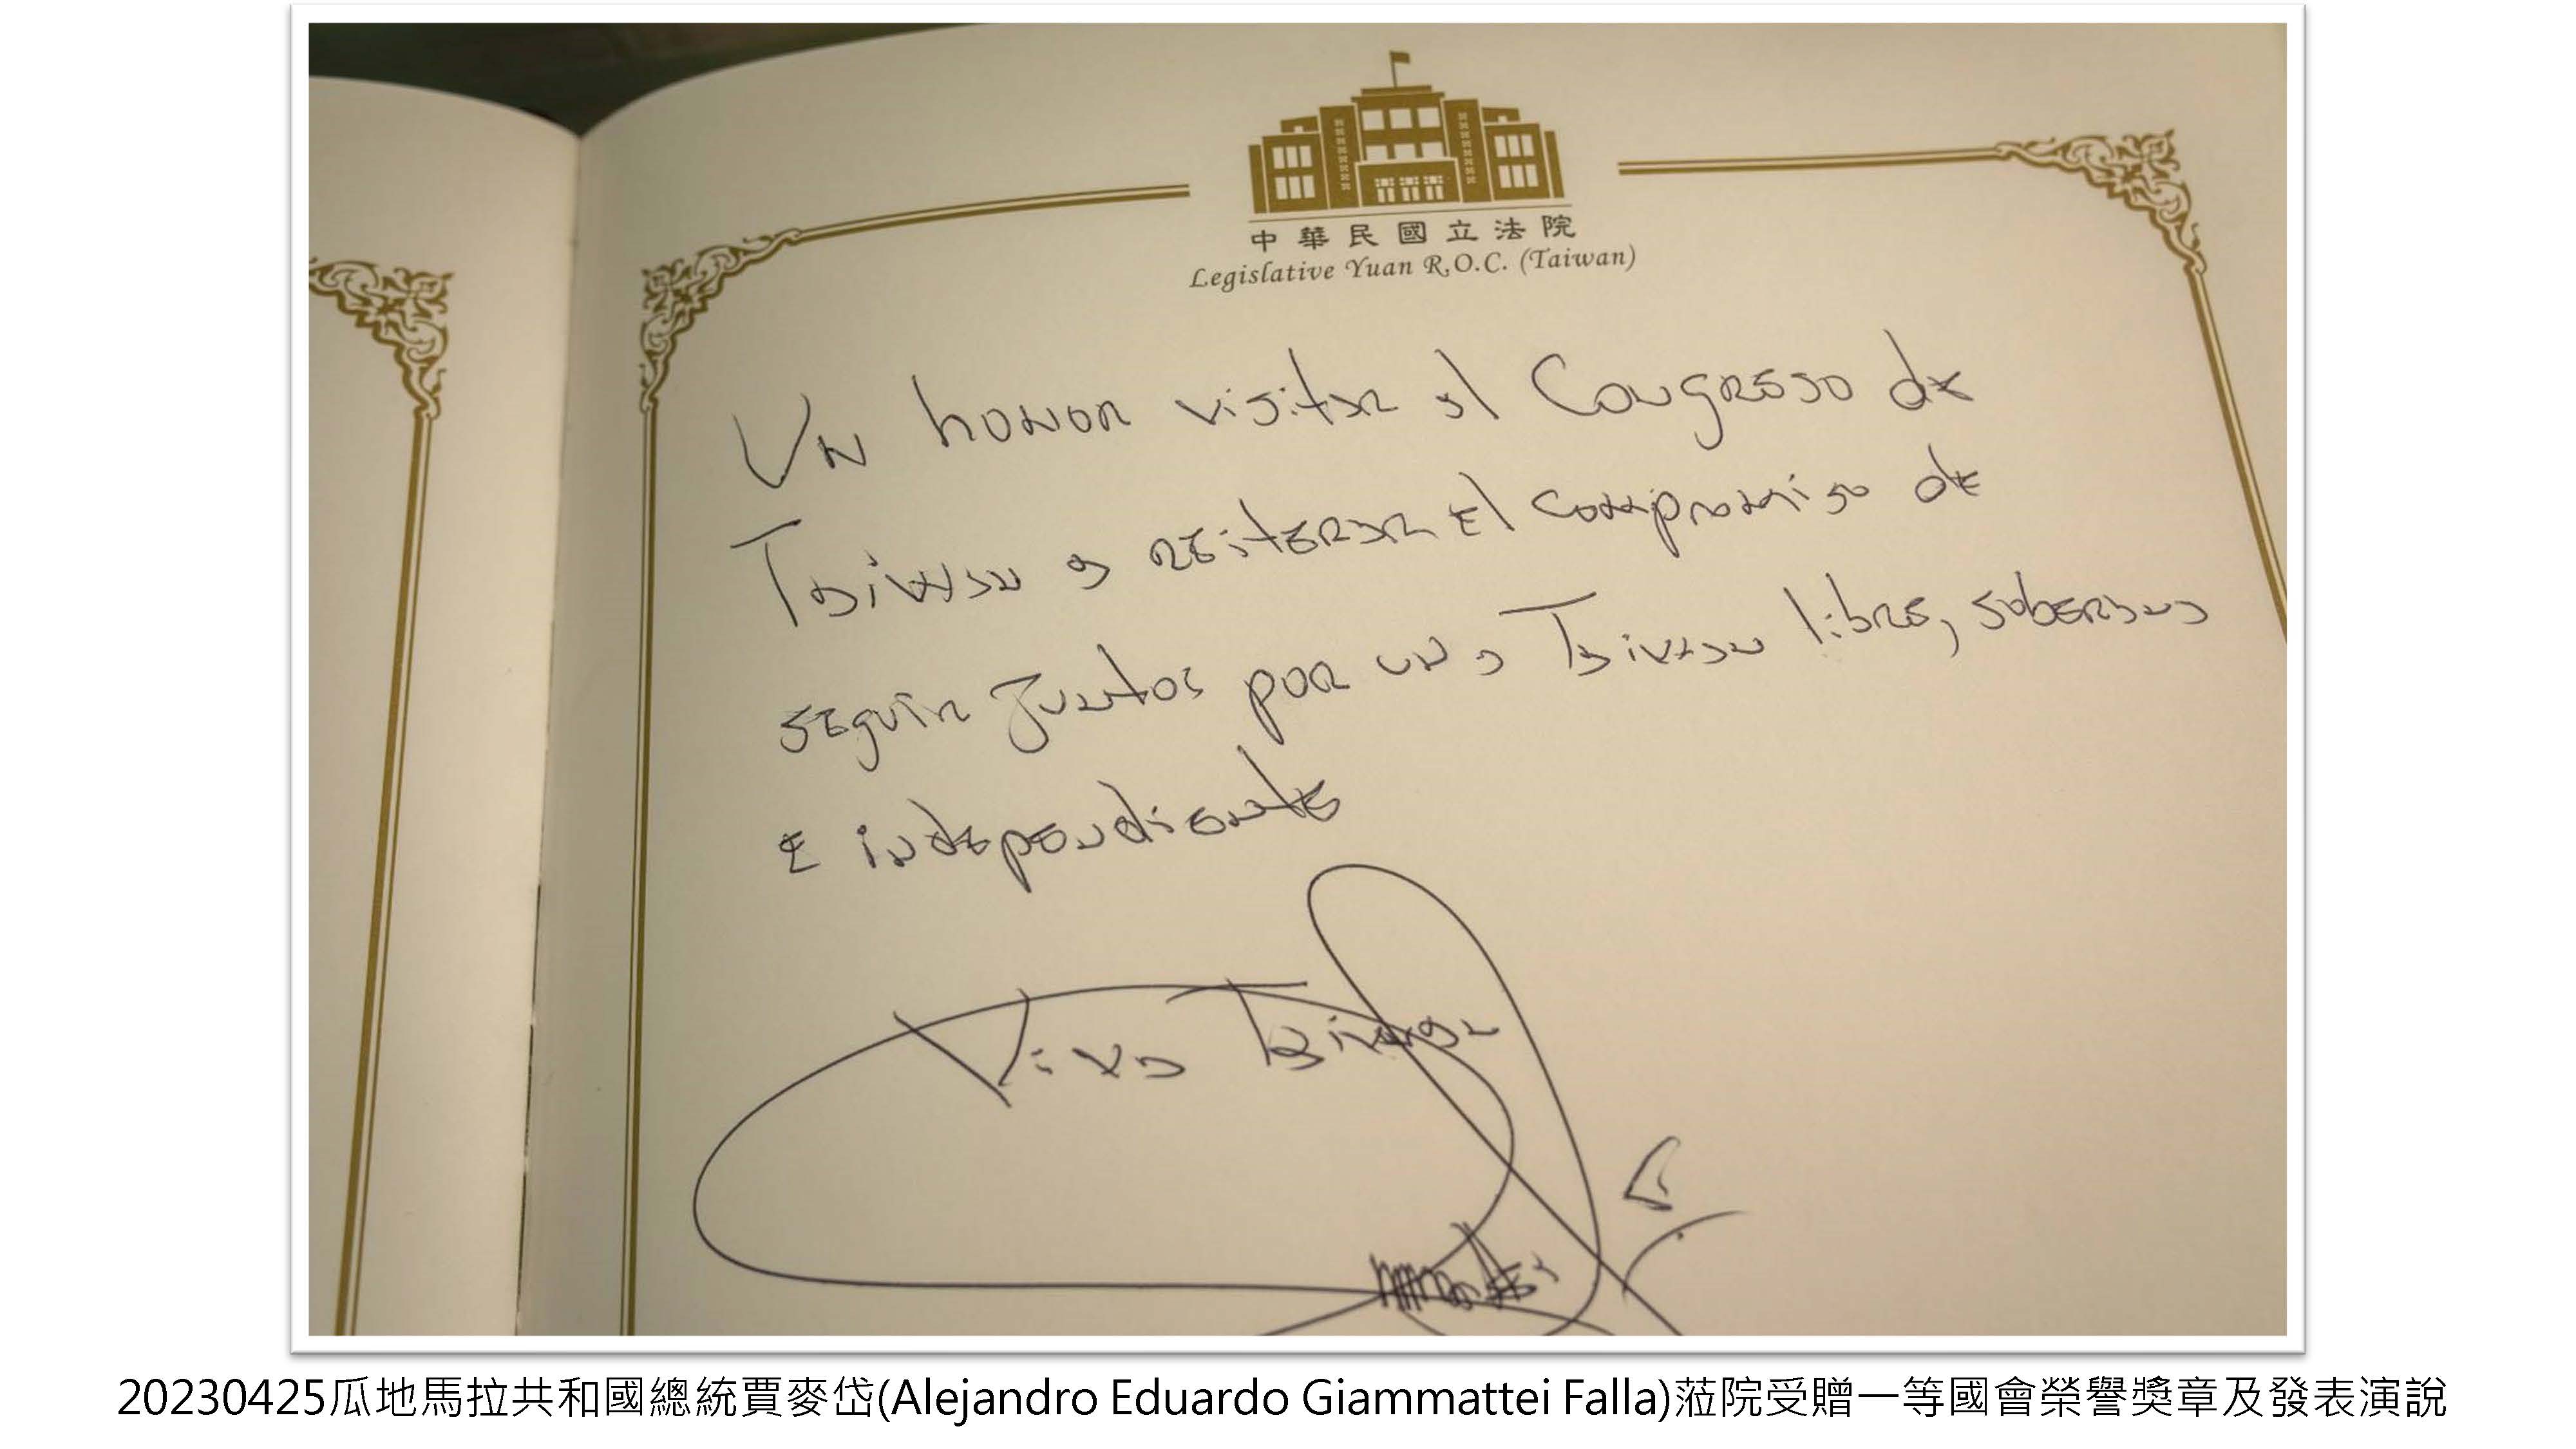 中華民國立法院
Legislative Yuan R.O.C. (Taiwan)
Un honor visitar el Congreso de
Taiwan y reiterar el compromiso de
seguir juntos por una Taiwan libre, soberana
e independiente
Viva Taiwan
20230425瓜地馬拉共和國總統賈麥岱(Alejandro Eduardo Giammattei Falla)蒞院受贈一等國會榮譽獎章及發表演說